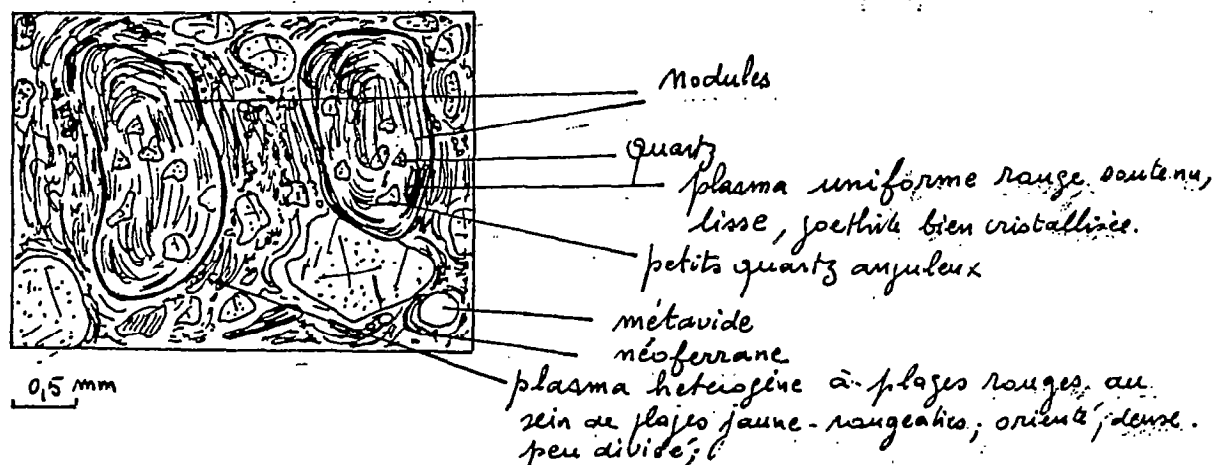 Nodules
quartz
plasma uniforme rouge soutenu,
lisse, goethite bien cristallisée.
petits quartz anguleux
métavide
néoferrane
plasma hétérogène à plages rouges au
sein de plages jaune-rougeatres, orienté, dense.
peu divisé;
0,5 mm